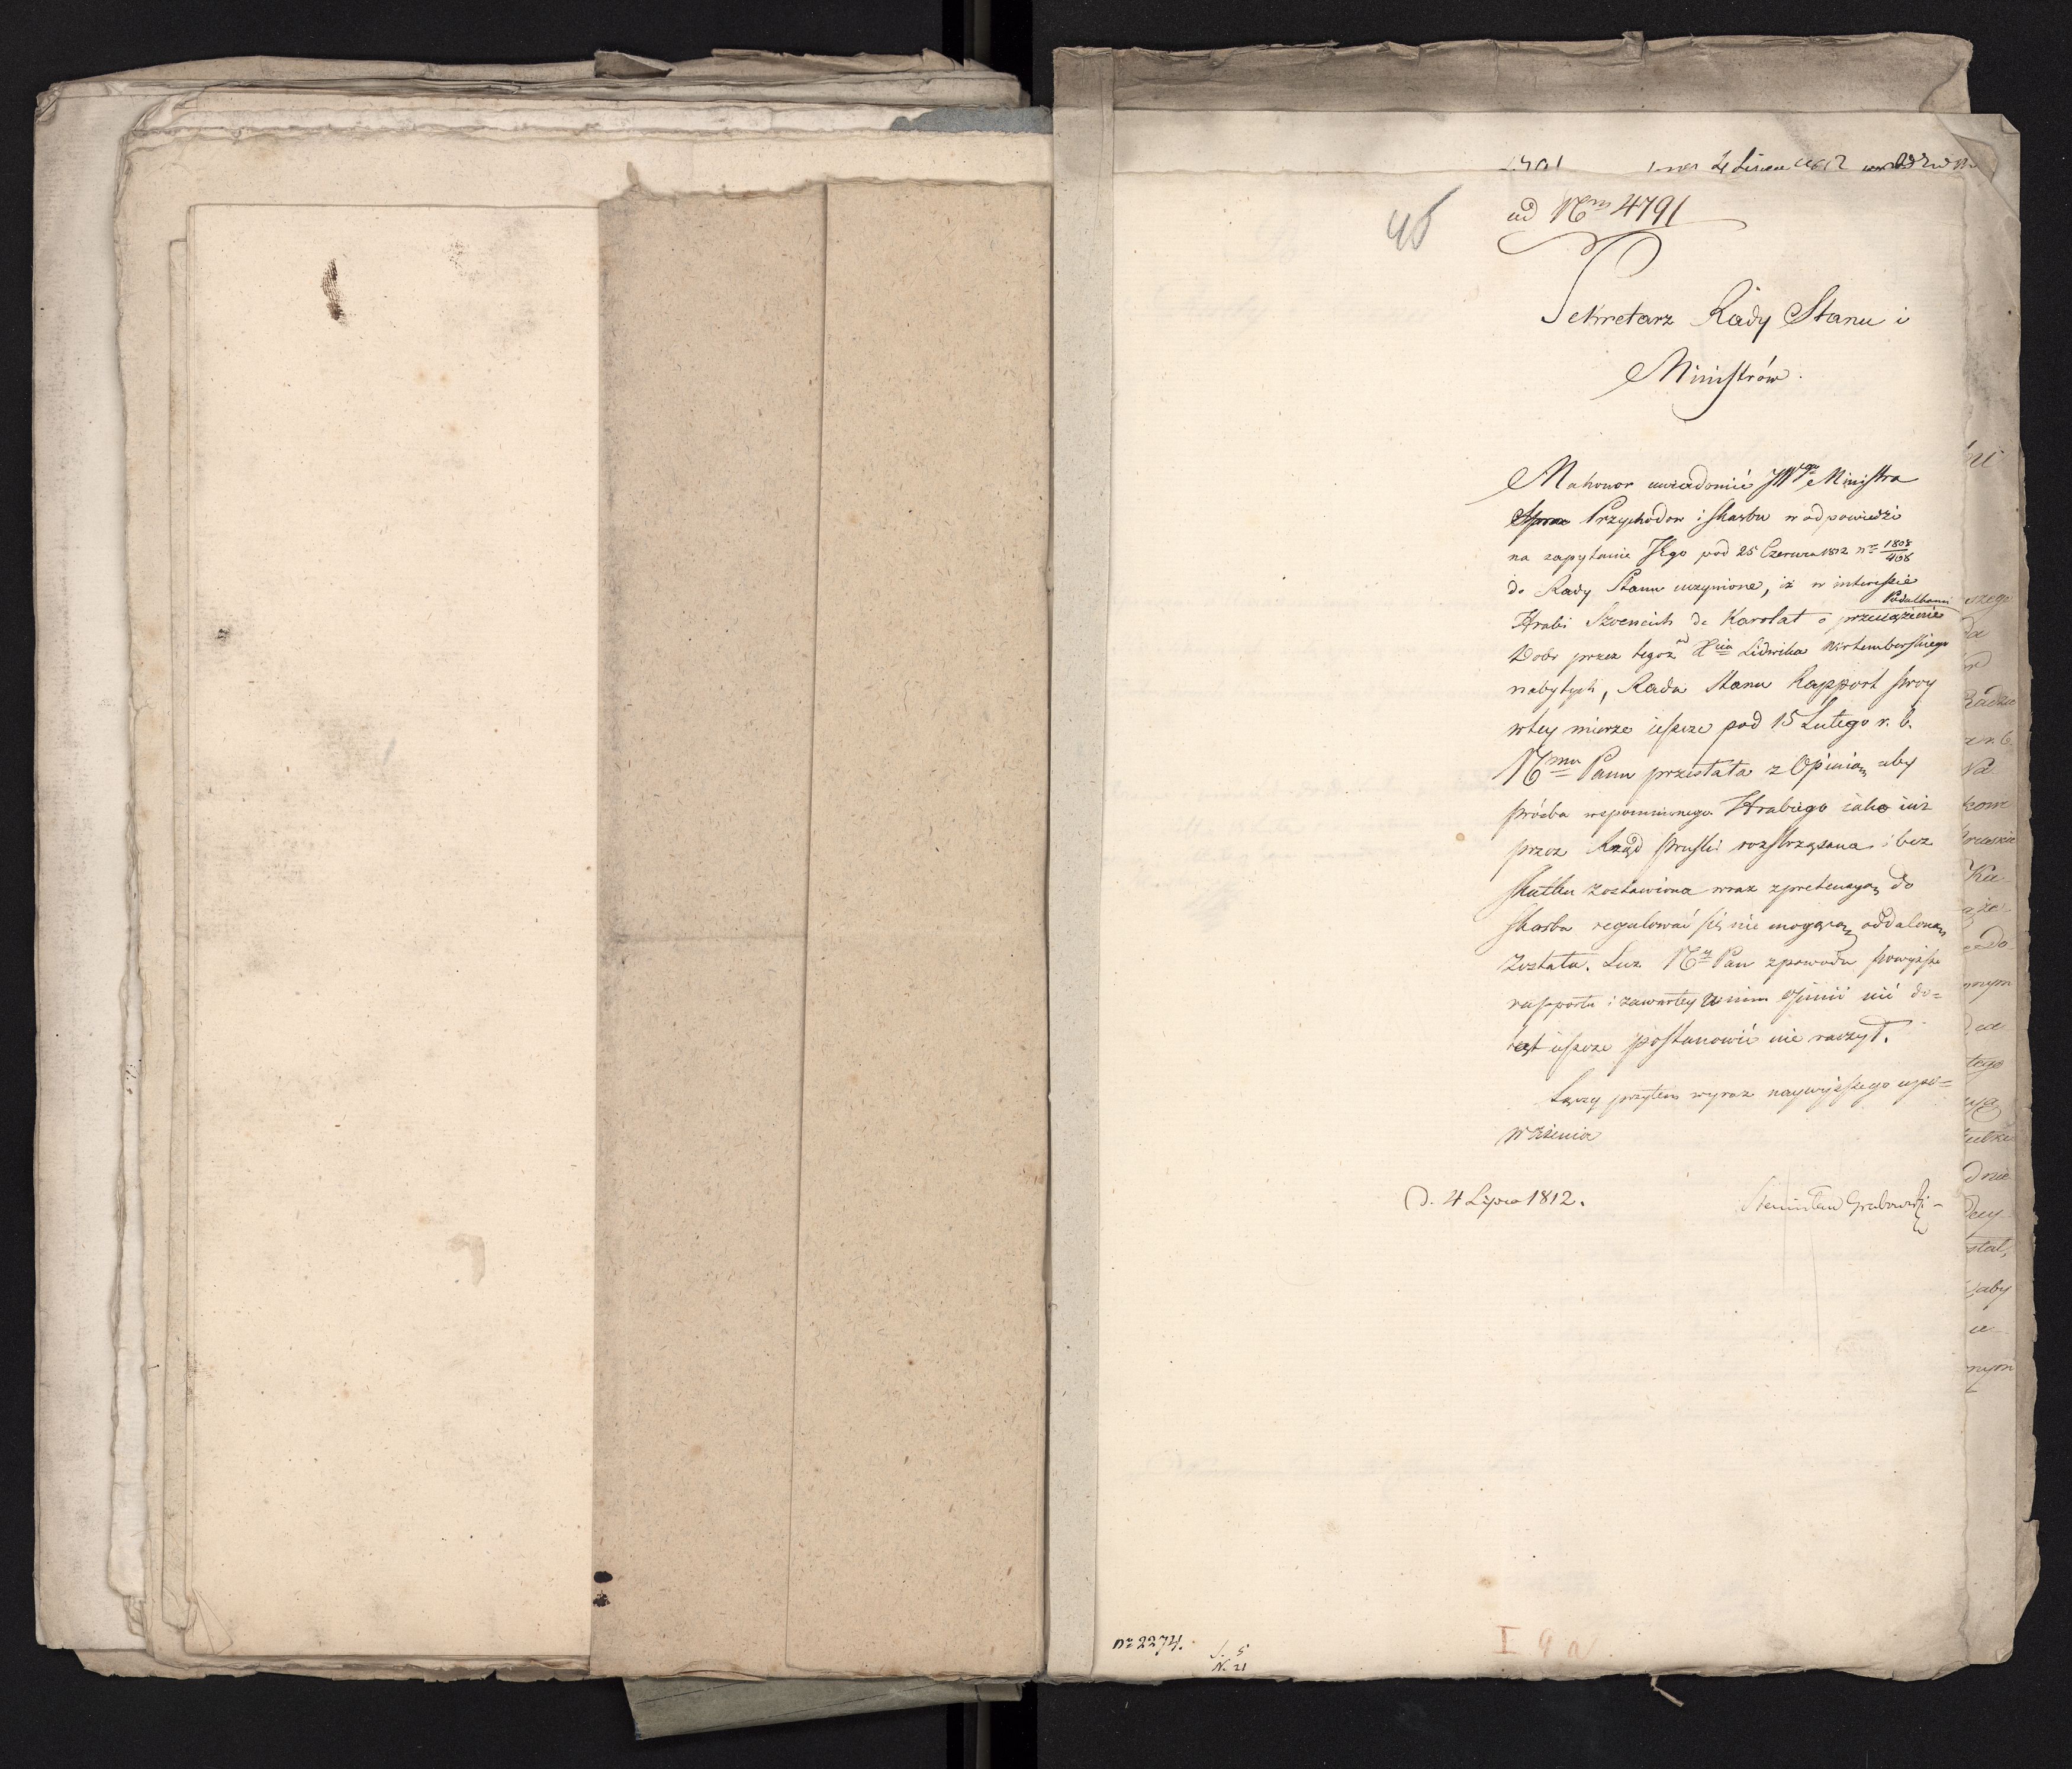 4 Lipca 1812
45
ad Nrm 4791
Sekretarz Rady Stanu i
Ministrów.
Ma honor uwiadomić JWgo Ministra
Przychodow i Skarbu w odpowiedzi
na zapytanie JEgo pod 25 Czerwca 1812 Nr 1808/
do Rady Stanu uczynione, iż w interessie
Hrabi de Karolat o
Dobr przez tegoż od Xcia Ludwika Wirtemberskiego
nabytych, Rada Stanu Rapport swoy
wtey mierze ieszcze pod 15 Lutego r. b.
Nmu Panu przesłała z Opinią aby
prośba wspomnionego Hrabiego iako iuż
przez Rząd Pruski roztrząsana i bez
skutku zostawiona wraz z pretensyą do
Skarbu regulować się nie mogącą oddaloną
została. Lecz Ny Pan z powodu powyższe
rapportu i zawartey w nim Opinii nic do=
tąd ieszcze postanowić nie raczył.
Łączy przytem wyraz naywyższego upo=
ważenia
D. 4 Lipca 1812.
Stanisław Grabowski
nr 2274.
5
N. 21
I 9 a.
szego
Ka
do
nnym
tego
dnie
aby
nnym